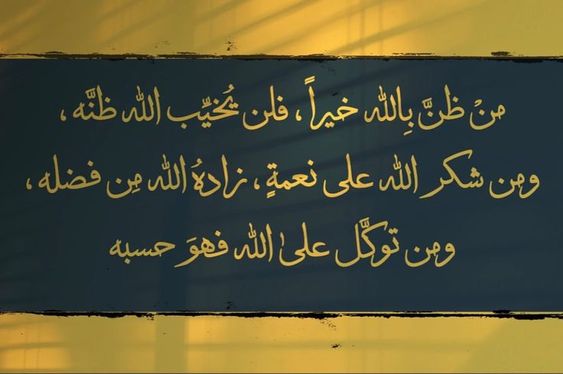 منْ ظنَّ بِالله خيراً، فلن يُخيِّب الله ظنَّه،
ومن شكر الله على نعمةٍ، زادهُ الله مِن فضله،
ومن توكَّل على الله فهوَ حسبه